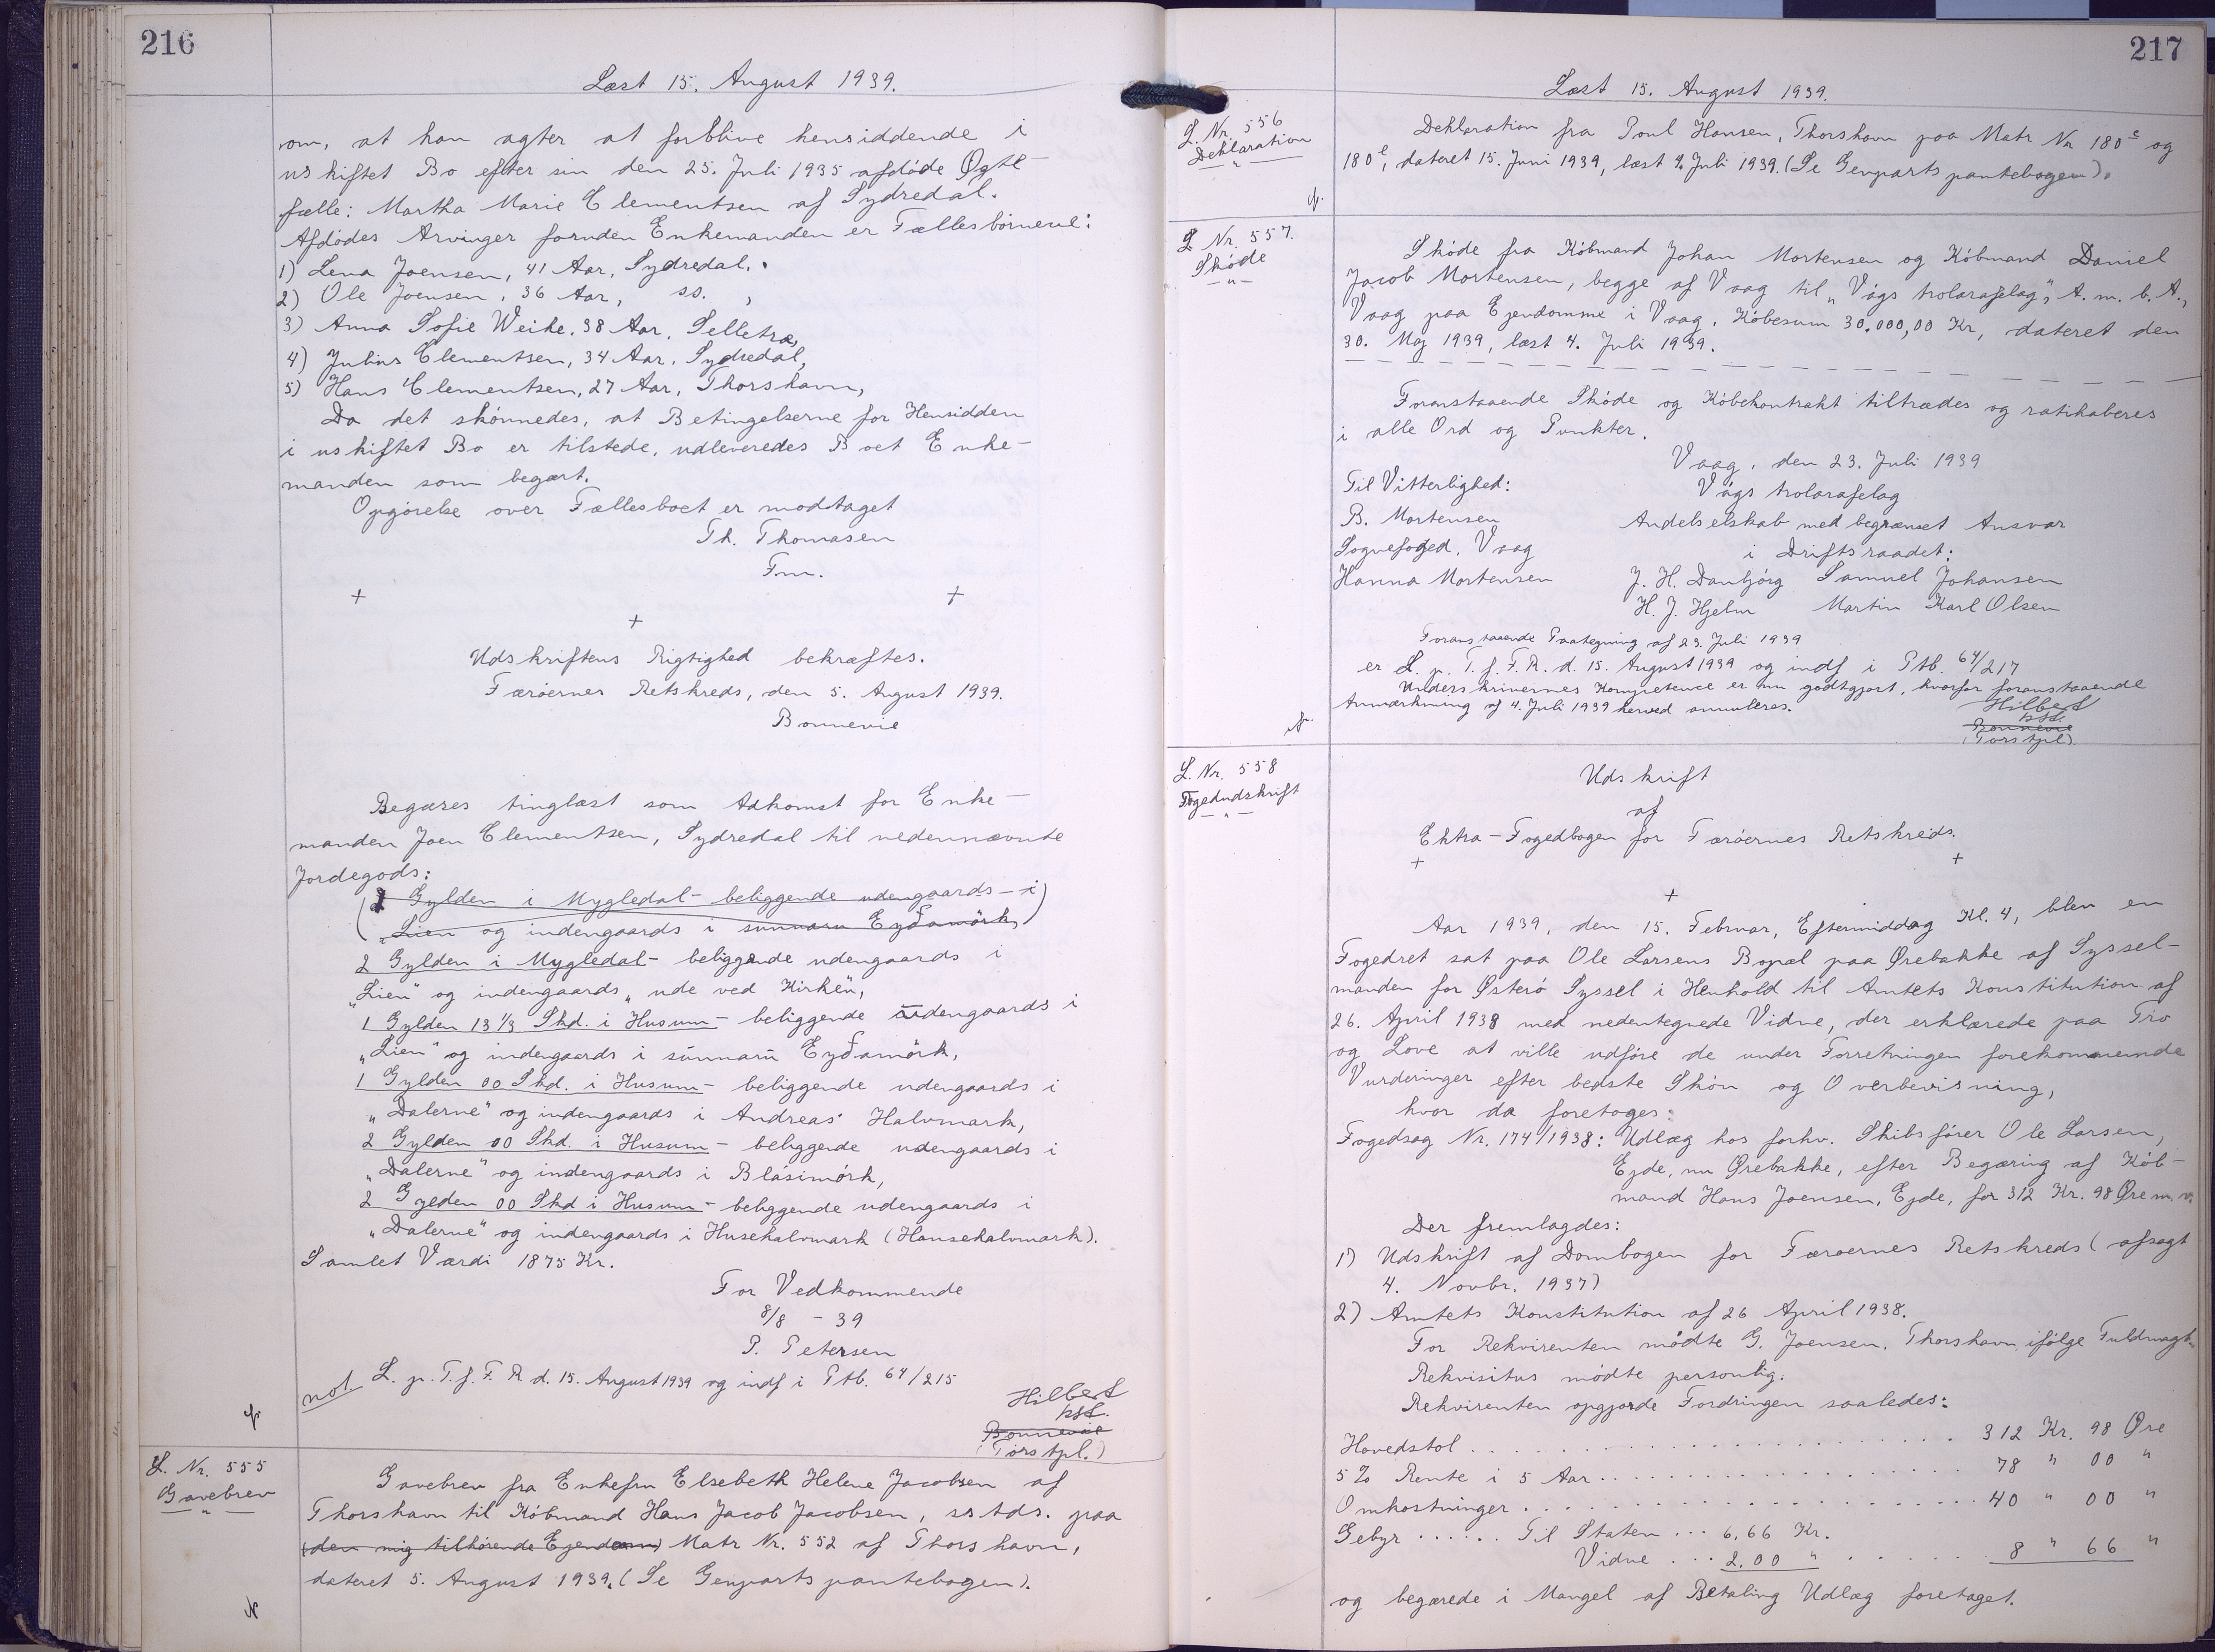 216
Læst 15. August 1939.
om, at han agter at forblive hensiddende i
uskiftet Bo efter sin den 25. Juli 1935 afdøde Ægte-
fælle: Martha Marie Clementsen af Sydredal.
Afdødes Arvinger foruden Enkemanden er Fællesbørnene:
1) Lena Joensen, 41 Aar, Sydredal.
2) Ole Joensen, 36 Aar, ss.,
3) Anna Sofie Weihe, 38 Aar, Selletræ,
4) Julius Clementsen, 34 Aar, Sydredal,
5) Hans Clementsen, 27 Aar, Thorshavn,
Da det skønnedes, at Betingelserne for Hensidden
i uskiftet Bo er tilstede, udleveredes Boet Enke-
manden som begært.
Opgørelse over Fællesboet er modtaget
Th. Thomasen
Fm.
+ + +
Udskriftens Rigtighed bekræftes.
Færøernes Retskreds, den 5. August 1939.
Bonnevie
Begæres tinglæst som Adkomst for Enke-
manden Joen Clementsen, Sydredal til nedennævnte
Jordegods:
(2 Gylden i Mygledal - beliggende udengaards - i
„Lien og indengaards i sunnaru Eyðamörk)
2 Gylden i Mygledal - beliggende udengaards i
„Lien" og indengaards „ude ved Kirken",
1 Gylden 13 1/3 Skd. i Husum - beliggende udengaards i
„Lien" og indengaards i sunnaru Eyðamörk,
1 Gylden 00 Skd. i Husum - beliggende udengaards i
„Dalerne" og indengaards i Andreas' Halvmark,
2 Gylden 00 Skd. i Husum - beliggende udengaards i
„Dalerne" og indengaards i Blásimörk,
2 Gylden 00 Skd i Husum - beliggende udengaards i
„Dalerne" og indengaards i Husehalvmark (Hansehalvmark).
Samlet Værdi 1875 Kr.
For Vedkommende
8/8 - 39
P. Petersen
not L. p. T. f. F. R d. 15. August 1939 og indf i Ptb. 64/215
Hilbert
kst.
Bonnevie
(Tørs tpl.)
L. Nr. 555
Gavebrev
Gavebrev fra Enkefru Elsebeth Helene Jacobsen af
Thorshavn til Købmand Hans Jacob Jacobsen, ss tds. paa
(den mig tilhørende Ejendom) Matr Nr. 552 af Thorshavn,
dateret 5. August 1939. (Se Genpartspantebogen).
217
Læst 15. August 1939.
L. Nr. 556
Deklaration
Deklaration fra Poul Hansen, Thorshavn paa Matr Nr 180 c og
180 e, dateret 15. Juni 1939, læst 4. Juli 1939. (Se Genpartspantebogen).
L Nr. 557.
Skøde
Skøde fra Købmand Johan Mortensen og Købmand Daniel
Jacob Mortensen, begge af Vaag til „Vágs trolarafelag", A. m. b. A.,
Vaag paa Ejendomme i Vaag. Købesum 30.000,00 Kr, dateret den
30. Maj 1939, læst 4. Juli 1939.
Foranstaaende Skøde og Købekontrakt tiltrædes og ratihaberes
i alle Ord og Punkter.
Vaag, den 23. Juli 1939
Til Vitterlighed: Vágs trolarafelag
B. Mortensen Andelselskab med begrænset Ansvar
Sognefoged, Vaag i Driftsraadet:
Hanna Mortensen J. H. Danbjørg Samuel Johansen
H. J. Hjelm Martin Karl Olsen
Foranstaaende Paategning af 23. Juli 1939
er L. p. T. f. F. R. d. 15. August 1939 og indf i Ptb. 64/217
Underskrivernes Kompetence er nu godtgjort, hvorfor foranstaaende
Anmærkning af 4. Juli 1939 herved annulleres.
Hilbert
kst.
Bonnevie
(Tørs tpl.)
L. Nr. 558
Fogedudskrift
Udskrift
af
Ektra-Fogedbogen for Færøernes Retskreds.
+ + +
Aar 1939, den 15. Februar, Eftermiddag Kl. 4, blev en
Fogedret sat paa Ole Larsens Bopæl paa Ørebakke af Syssel-
manden for Østerø Syssel i Henhold til Amtets Konstitution af
26. April 1938 med nedentegnede Vidne, der erklærede paa Tro
og Love at ville udføre de under Forretningen forekommende
Vurderinger efter bedste Skøn og Overbevisning,
hvor da foretoges:
Fogedsag Nr. 174/1938: Udlæg hos forhv. Skibsfører Ole Larsen,
Ejde, nu Ørebakke, efter Begæring af Køb-
mand Hans Joensen, Ejde, for 312 Kr. 98 Øre m. v.
Der fremlagdes:
1) Udskrift af Dombogen for Færøernes Retskreds (afsagt
4. Novbr. 1937)
2) Amtets Konstitution af 26 April 1938.
For Rekvirenten mødte G. Joensen, Thorshavn ifølge Fuldmagt.
Rekvisitus mødte personlig.
Rekvirenten opgjorde Fordringen saaledes:
Hovedstol . . . . . . . . . . 312 Kr. 98 Øre
5 % Rente i 5 Aar . . . . . . . . . . 78 " 00 "
Omkostninger . . . . . . . . . . 40 " 00 "
Gebyr . . . . . . Til Staten . . . 6,66 Kr.
Vidne . . . 2,00 " . . . . . . 8 " 66 "
og begærede i Mangel af Betaling Udlæg foretaget.